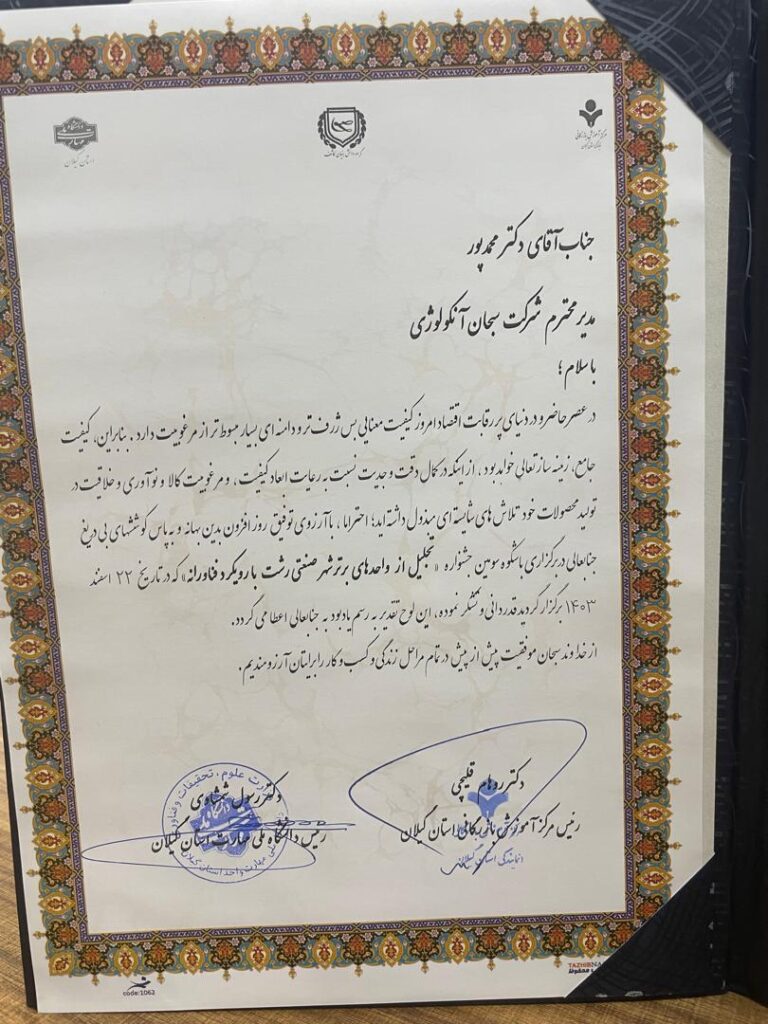 دانشگاه ملی مهارت
استان گیلان
گروه دانش بنیان کاشف
مرکز آموزش بازرگانی
جناب آقای دکتر محمدپور
مدیر محترم شرکت سبحان آنکولوژی
با سلام ؛
در عصر حاضر و در دنیای پر رقابت اقتصاد امروز کیفیت معنایی بس ژرف تر و دامنه ای بسیار مبسوط تر از مرغوبیت دارد . بنابراین، کیفیت
جامع، زمینه ساز تعالی خواهد بود ، از اینکه در کمال دقت و جدیت نسبت به رعایت ابعاد کیفیت، و مرغوبیت کالا و نوآوری و خلاقیت در
تولید محصولات خود تلاش های شایسته ای مبذول داشته اید؛ احتراما ، با آرزوی توفیق روز افزون بدین بهانه و به پاس کوششهای بی دریغ
جنابعالی در برگزاری باشکوه سومین جشنواره «تجلیل از واحدهای برتر شهر صنعتی رشت با رویکرد فناورانه» که در تاریخ ۲۲ اسفند
۱۴۰۳ برگزار گردید قدردانی و تشکر نموده ، این لوح تقدیر به رسم یادبود به جنابعالی اعطا می گردد.
از خداوند سبحان موفقیت بیش از پیش در تمام مراحل زندگی و کسب و کار را برایتان آرزومندیم.
دکتر رهام قلیچی
رئیس مرکز آموزش بازرگانی استان گیلان
نمایندگی استان گیلان
دکتر رسول ششناوی
رئیس دانشگاه ملی مهارت استان گیلان
وزارت علوم، تحقیقات و فناوری
code:1062
TAZHIB